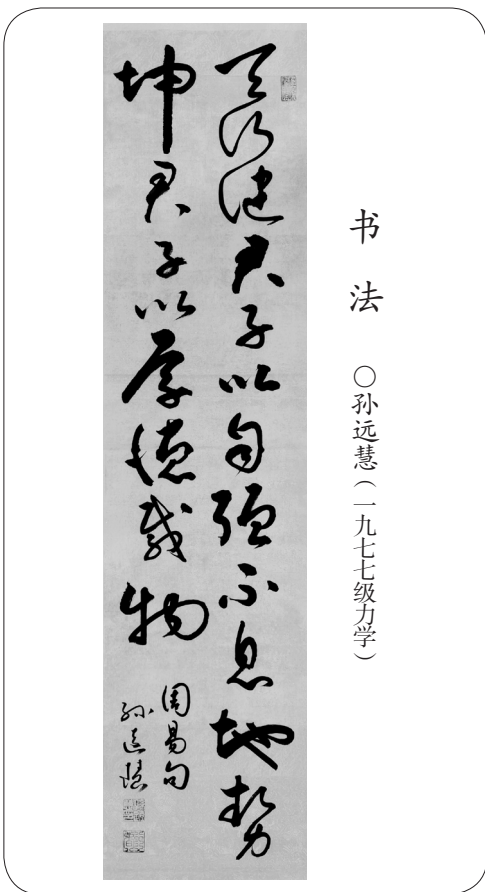 书法
○孙远慧（一九七七级力学）
天行健君子以自强不息地势
坤君子以厚德载物
周易句
孙远慧